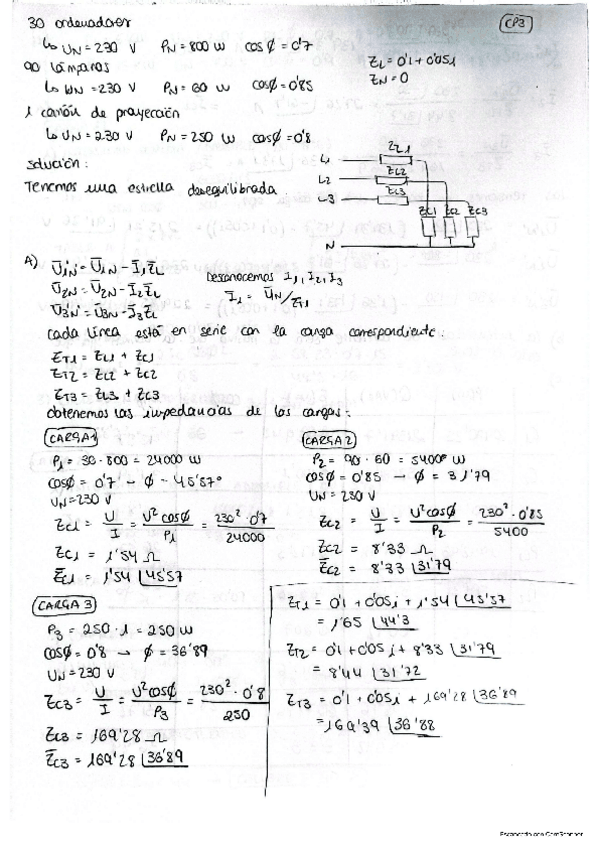 30 ordenadores
CP3
↳ UN = 230 V PN = 800 W cosϕ = 0'7
90 lámparas
ZL = 0'1 + 0'05i
↳ UN = 230 V PN = 60 W cosϕ = 0'85
ZN = 0
1 cañón de proyección
↳ UN = 230 V PN = 250 W cosϕ = 0'8
solución:
Tenemos una estrella desequilibrada
L1 ZL1
L2 ZL2
L3 ZL3
ZC1 ZC2 ZC3
N
A) U̅1'N' = U̅1N - I̅1Z̅L
U̅2'N' = U̅2N - I̅2Z̅L
U̅3'N' = U̅3N - I̅3Z̅L
Desconocemos I1, I2, I3
I̅1 = U̅N/Z̅T1
cada línea está en serie con la carga correspondiente:
ZT1 = ZL1 + ZC1
ZT2 = ZL2 + ZC2
ZT3 = ZL3 + ZC3
obtenemos las impedancias de las cargas:
CARGA 1
P1 = 30·800 = 24000 W
cosϕ = 0'7 → ϕ = 45'57°
UN = 230 V
ZC1 = U/I = U²cosϕ/P1 = 230²·0'7/24000
ZC1 = 1'54 Ω
Z̅C1 = 1'54 ∠45'57
CARGA 2
P2 = 90·60 = 5400 W
cosϕ = 0'85 → ϕ = 31'79
UN = 230 V
ZC2 = U/I = U²cosϕ/P2 = 230²·0'85/5400
ZC2 = 8'33 Ω
Z̅C2 = 8'33 ∠31'79
CARGA 3
P3 = 250·1 = 250 W
cosϕ = 0'8 → ϕ = 36'89
UN = 230 V
ZC3 = U/I = U²cosϕ/P3 = 230²·0'8/250
ZC3 = 169'28 Ω
Z̅C3 = 169'28 ∠36'89
ZT1 = 0'1 + 0'05i + 1'54 ∠45'57
= 1'65 ∠44'3
ZT2 = 0'1 + 0'05i + 8'33 ∠31'79
= 8'44 ∠31'72
ZT3 = 0'1 + 0'05i + 169'28 ∠36'89
= 169'39 ∠36'88
Escaneado con CamScanner